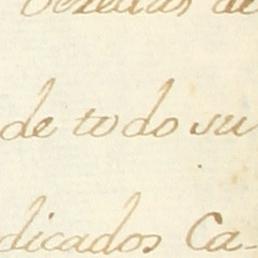 de
de todo su
dicados Ca-